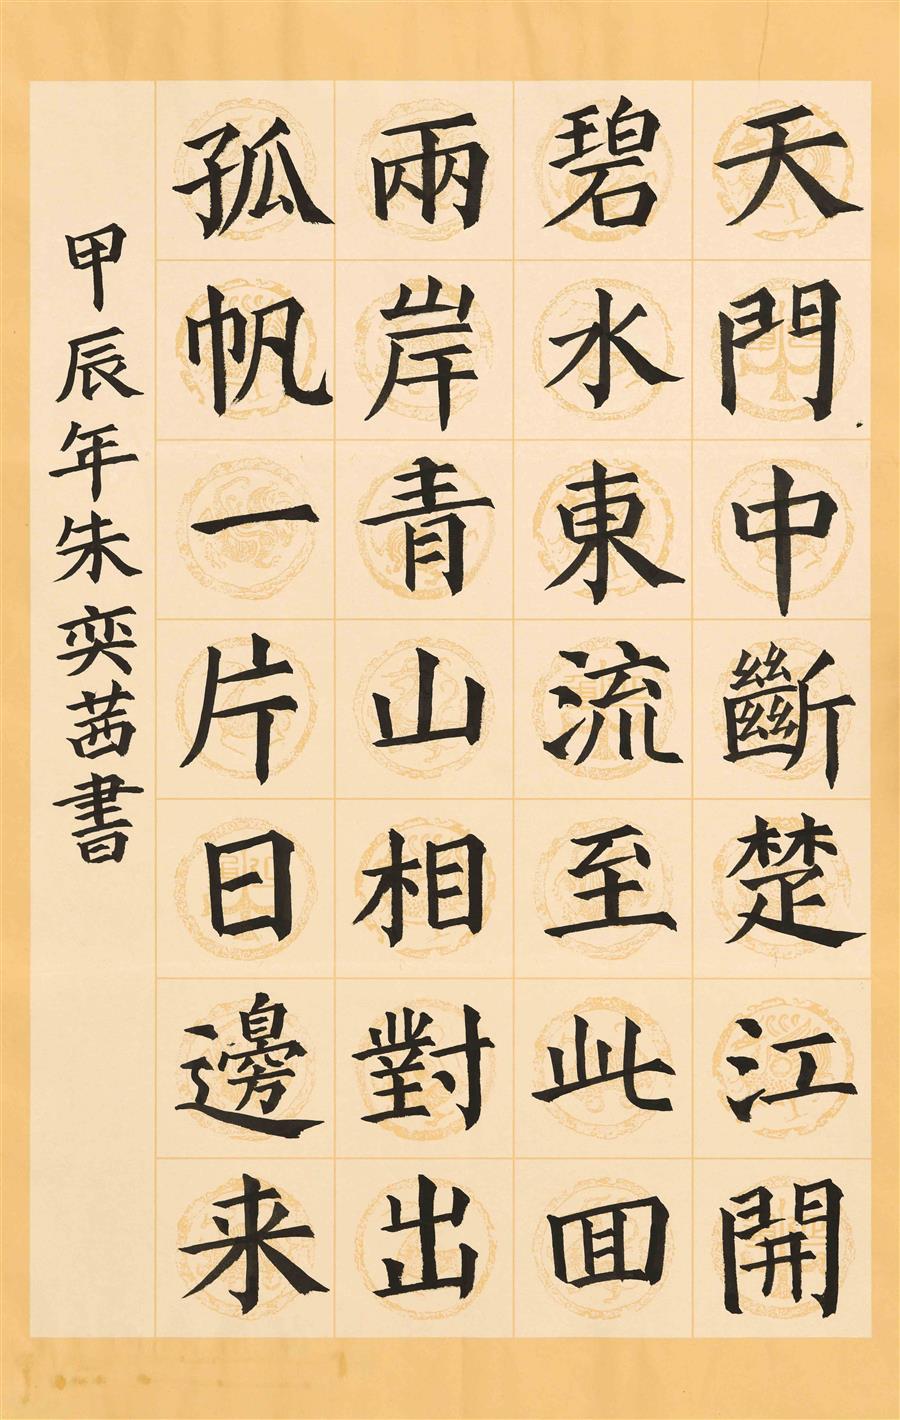 天門中斷楚江開
碧水東流至此回
兩岸青山相對出
孤帆一片日邊来
甲辰年朱奕茜書